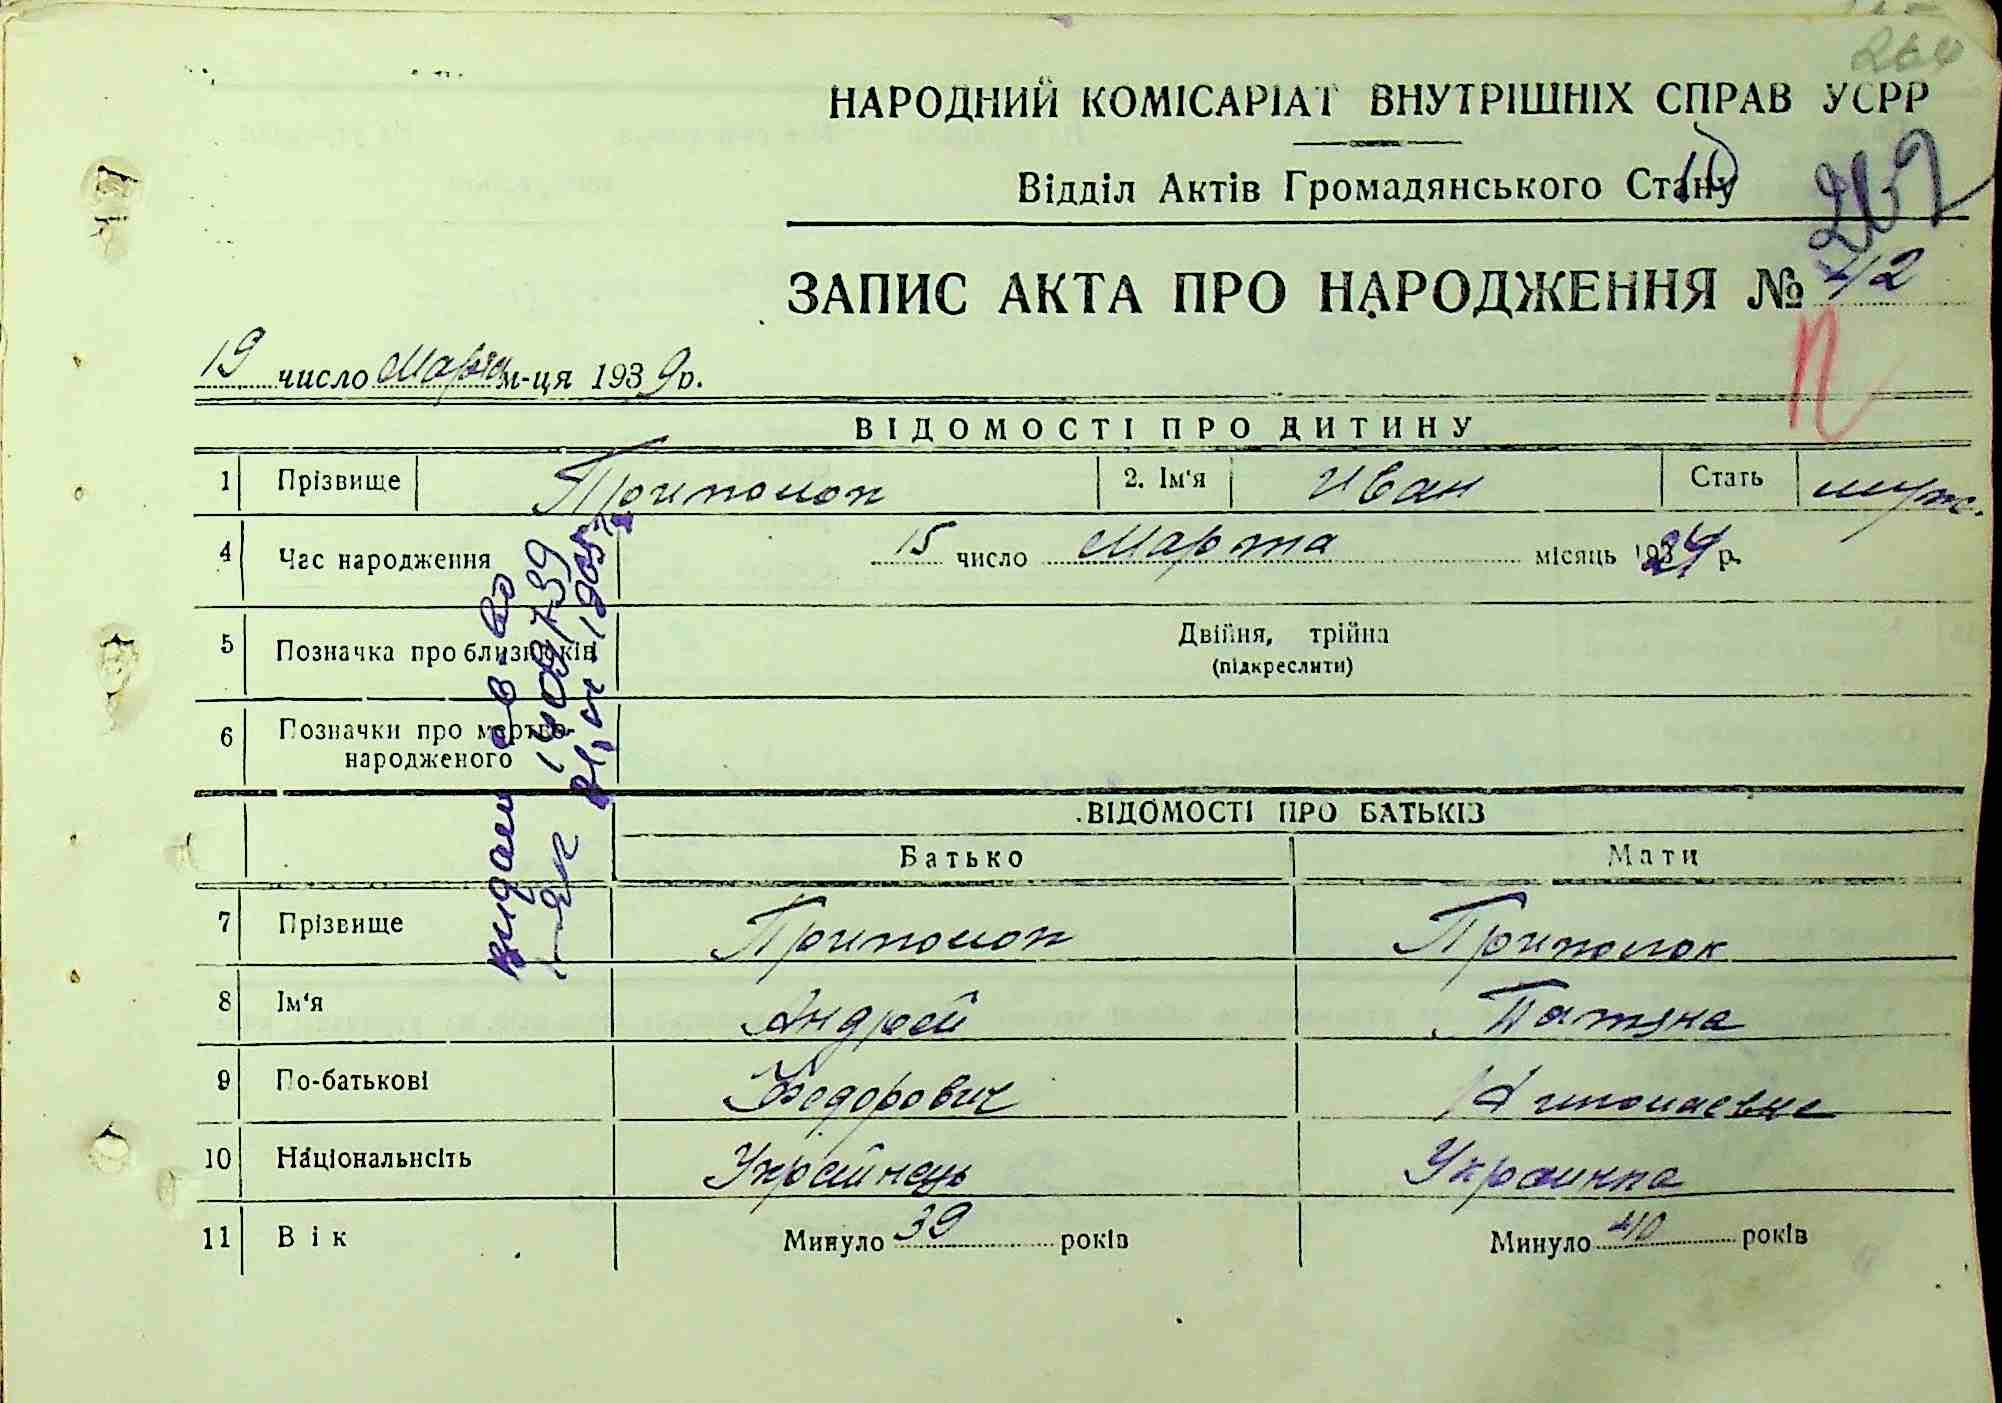 264
НАРОДНИЙ КОМІСАРІАТ ВНУТРІШНІХ СПРАВ УСРР
Відділ Актів Громадянського Стану
ЗАПИС АКТА ПРО НАРОДЖЕННЯ № 42
19 число Марта м-ця 1939 р.
ВІДОМОСТІ ПРО ДИТИНУ
1 Прізвище 2. Ім'я Иван Стать муж.
4 Час народження 15 число Марта місяць 1924 р.
5 Позначка про близнюків Двійня, трійна
(підкреслити)
6 Позначки про мертво-
народженого
ВІДОМОСТІ ПРО БАТЬКІВ
Батько Мати
7 Прізвище
8 Ім'я Андрей Татяна
9 По-батькові Федорович
10 Національнсіть Українець Украинка
11 Вік Минуло 39 років Минуло 40 років